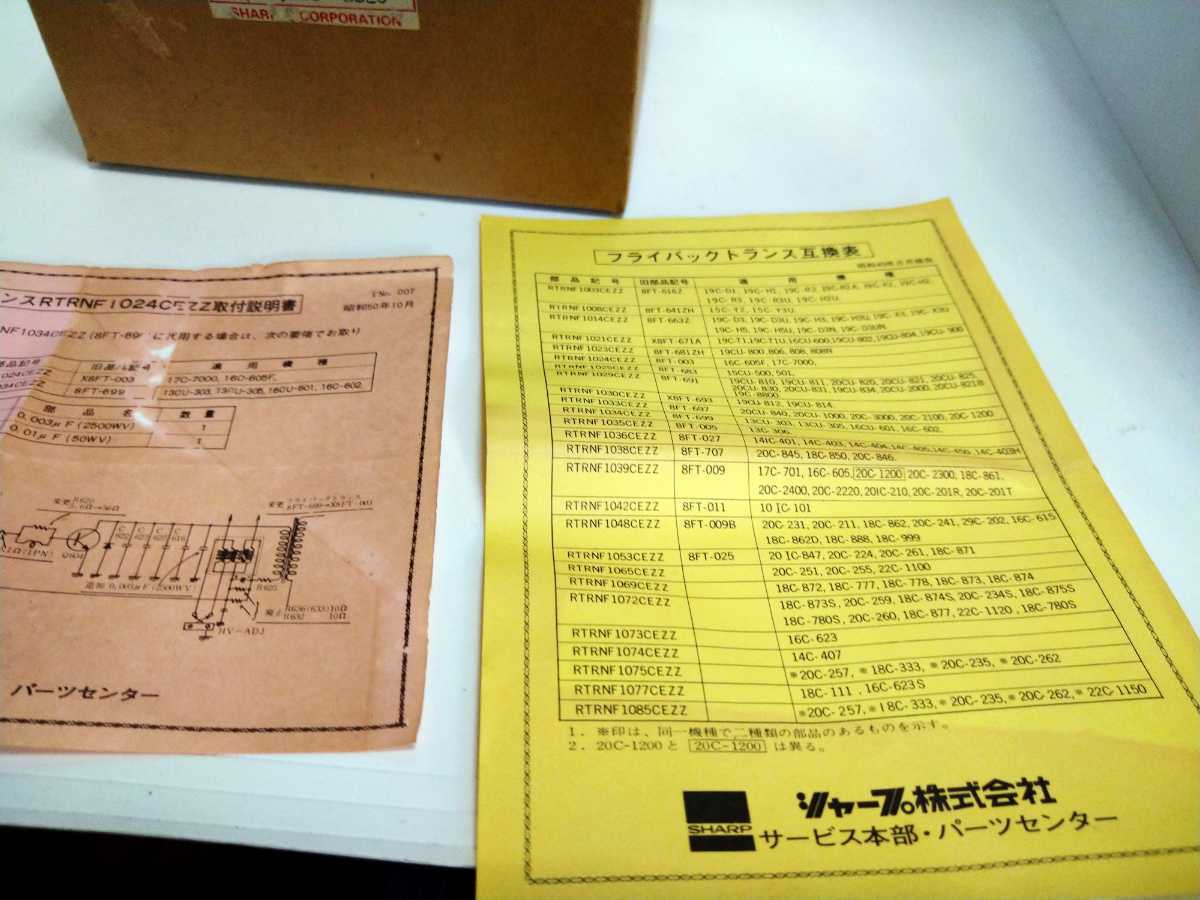 SHARP CORPORATION
TNo. 007
ンスRTRNF1024CEZZ取付説明書
昭和50年10月
NF1034CEZZ(8FT-69 に代用する場合は、次の要領でお取り
部品記号 旧部品記号 適用機種
1024CEZZ X8FT-003 17C-7000, 16C-605F,
034CEZZ 8FT-699 13CU-303, 13CU-305, 16CU-601, 16C-602,
部品名 数量
0.003μF(2500WV) 1
0.01μF(50WV) 1
変更 R620
5.6Ω→56Ω
フライバックトランス
変更 8FT-699→X8FT-003
1Ω(1PN)
Q604
追加 0.003μF(2500WV)
R625
廃止 R636(633)10Ω
R632 10Ω
HV-ADJ
パーツセンター
フライバックトランス互換表
部品記号 旧部品記号 適用機種
RTRNF1003CEZZ 8FT-616Z 19C-D1, 19C-H1, 19C-R2, 19C-R2A, 19C-K2, 19C-H2,
19C-R3, 19C-R3U, 19C-H2U,
RTRNF1008CEZZ 8FT-641ZH 15C-Y2, 15C-Y3U,
RTRNF1014CEZZ 8FT-663Z 19C-D3, 19C-D3U, 19C-H3, 19C-H3U, 19C-K3, 19C-K3U
19C-H5, 19C-H5U, 19C-D3N, 19C-D3UN,
RTRNF1021CEZZ X8FT-671A 19C-T1, 19C-T1U, 16CU-600, 19CU-802, 19CU-804, 19CU-900
RTRNF1023CEZZ 8FT-681ZH 19CU-800, 806, 808, 808R
RTRNF1024CEZZ 8FT-003 16C-605F, 17C-7000,
RTRNF1025CEZZ 8FT-683 15CU-500, 501,
RTRNF1029CEZZ 8FT-691 19CU-810, 19CU-811, 20CU-820, 20CU-821, 20CU-825,
20CU-830, 20CU-831, 19CU-834, 20CU-2000, 20CU-821B
19C-8800
RTRNF1030CEZZ X8FT-693 19CU-812, 19CU-814,
RTRNF1033CEZZ 8FT-697 20CU-840, 20CU-1000, 20C-3000, 20C-2100, 20C-1200
RTRNF1034CEZZ 8FT-699 13CU-303, 13CU-305, 16CU-601, 16C-602,
RTRNF1035CEZZ 8FT-005 13C-306,
RTRNF1036CEZZ 8FT-027 14IC-401, 14C-403, 14C-404, 14C-405, 14C-450, 14C-403H
RTRNF1038CEZZ 8FT-707 20C-845, 18C-850, 20C-846,
RTRNF1039CEZZ 8FT-009 17C-701, 16C-605, 20C-1200 20C-2300, 18C-861,
20C-2400, 20C-2220, 20IC-210, 20C-201R, 20C-201T
RTRNF1042CEZZ 8FT-011 10 IC-101
RTRNF1048CEZZ 8FT-009B 20C-231, 20C-211, 18C-862, 20C-241, 29C-202, 16C-615
18C-862D, 18C-888, 18C-999
RTRNF1053CEZZ 8FT-025 20 IC-847, 20C-224, 20C-261, 18C-871
RTRNF1065CEZZ 20C-251, 20C-255, 22C-1100
RTRNF1069CEZZ 18C-872, 18C-777, 18C-778, 18C-873, 18C-874
RTRNF1072CEZZ 18C-873S, 20C-259, 18C-874S, 20C-234S, 18C-875S
18C-780S, 20C-260, 18C-877, 22C-1120, 18C-780S
RTRNF1073CEZZ 16C-623
RTRNF1074CEZZ 14C-407
RTRNF1075CEZZ ※20C-257, ※18C-333, ※20C-235, ※20C-262
RTRNF1077CEZZ 18C-111, 16C-623S
RTRNF1085CEZZ ※20C-257, ※18C-333, ※20C-235, ※20C-262, ※22C-1150
1. ※印は、同一機種で二種類の部品のあるものを示す。
2. 20C-1200と 20C-1200 は異る。
SHARP
シャープ株式会社
サービス本部・パーツセンター